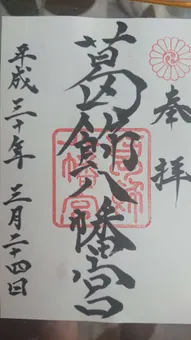 奉拝
葛飾八幡宮
平成三十年 三月二十四日